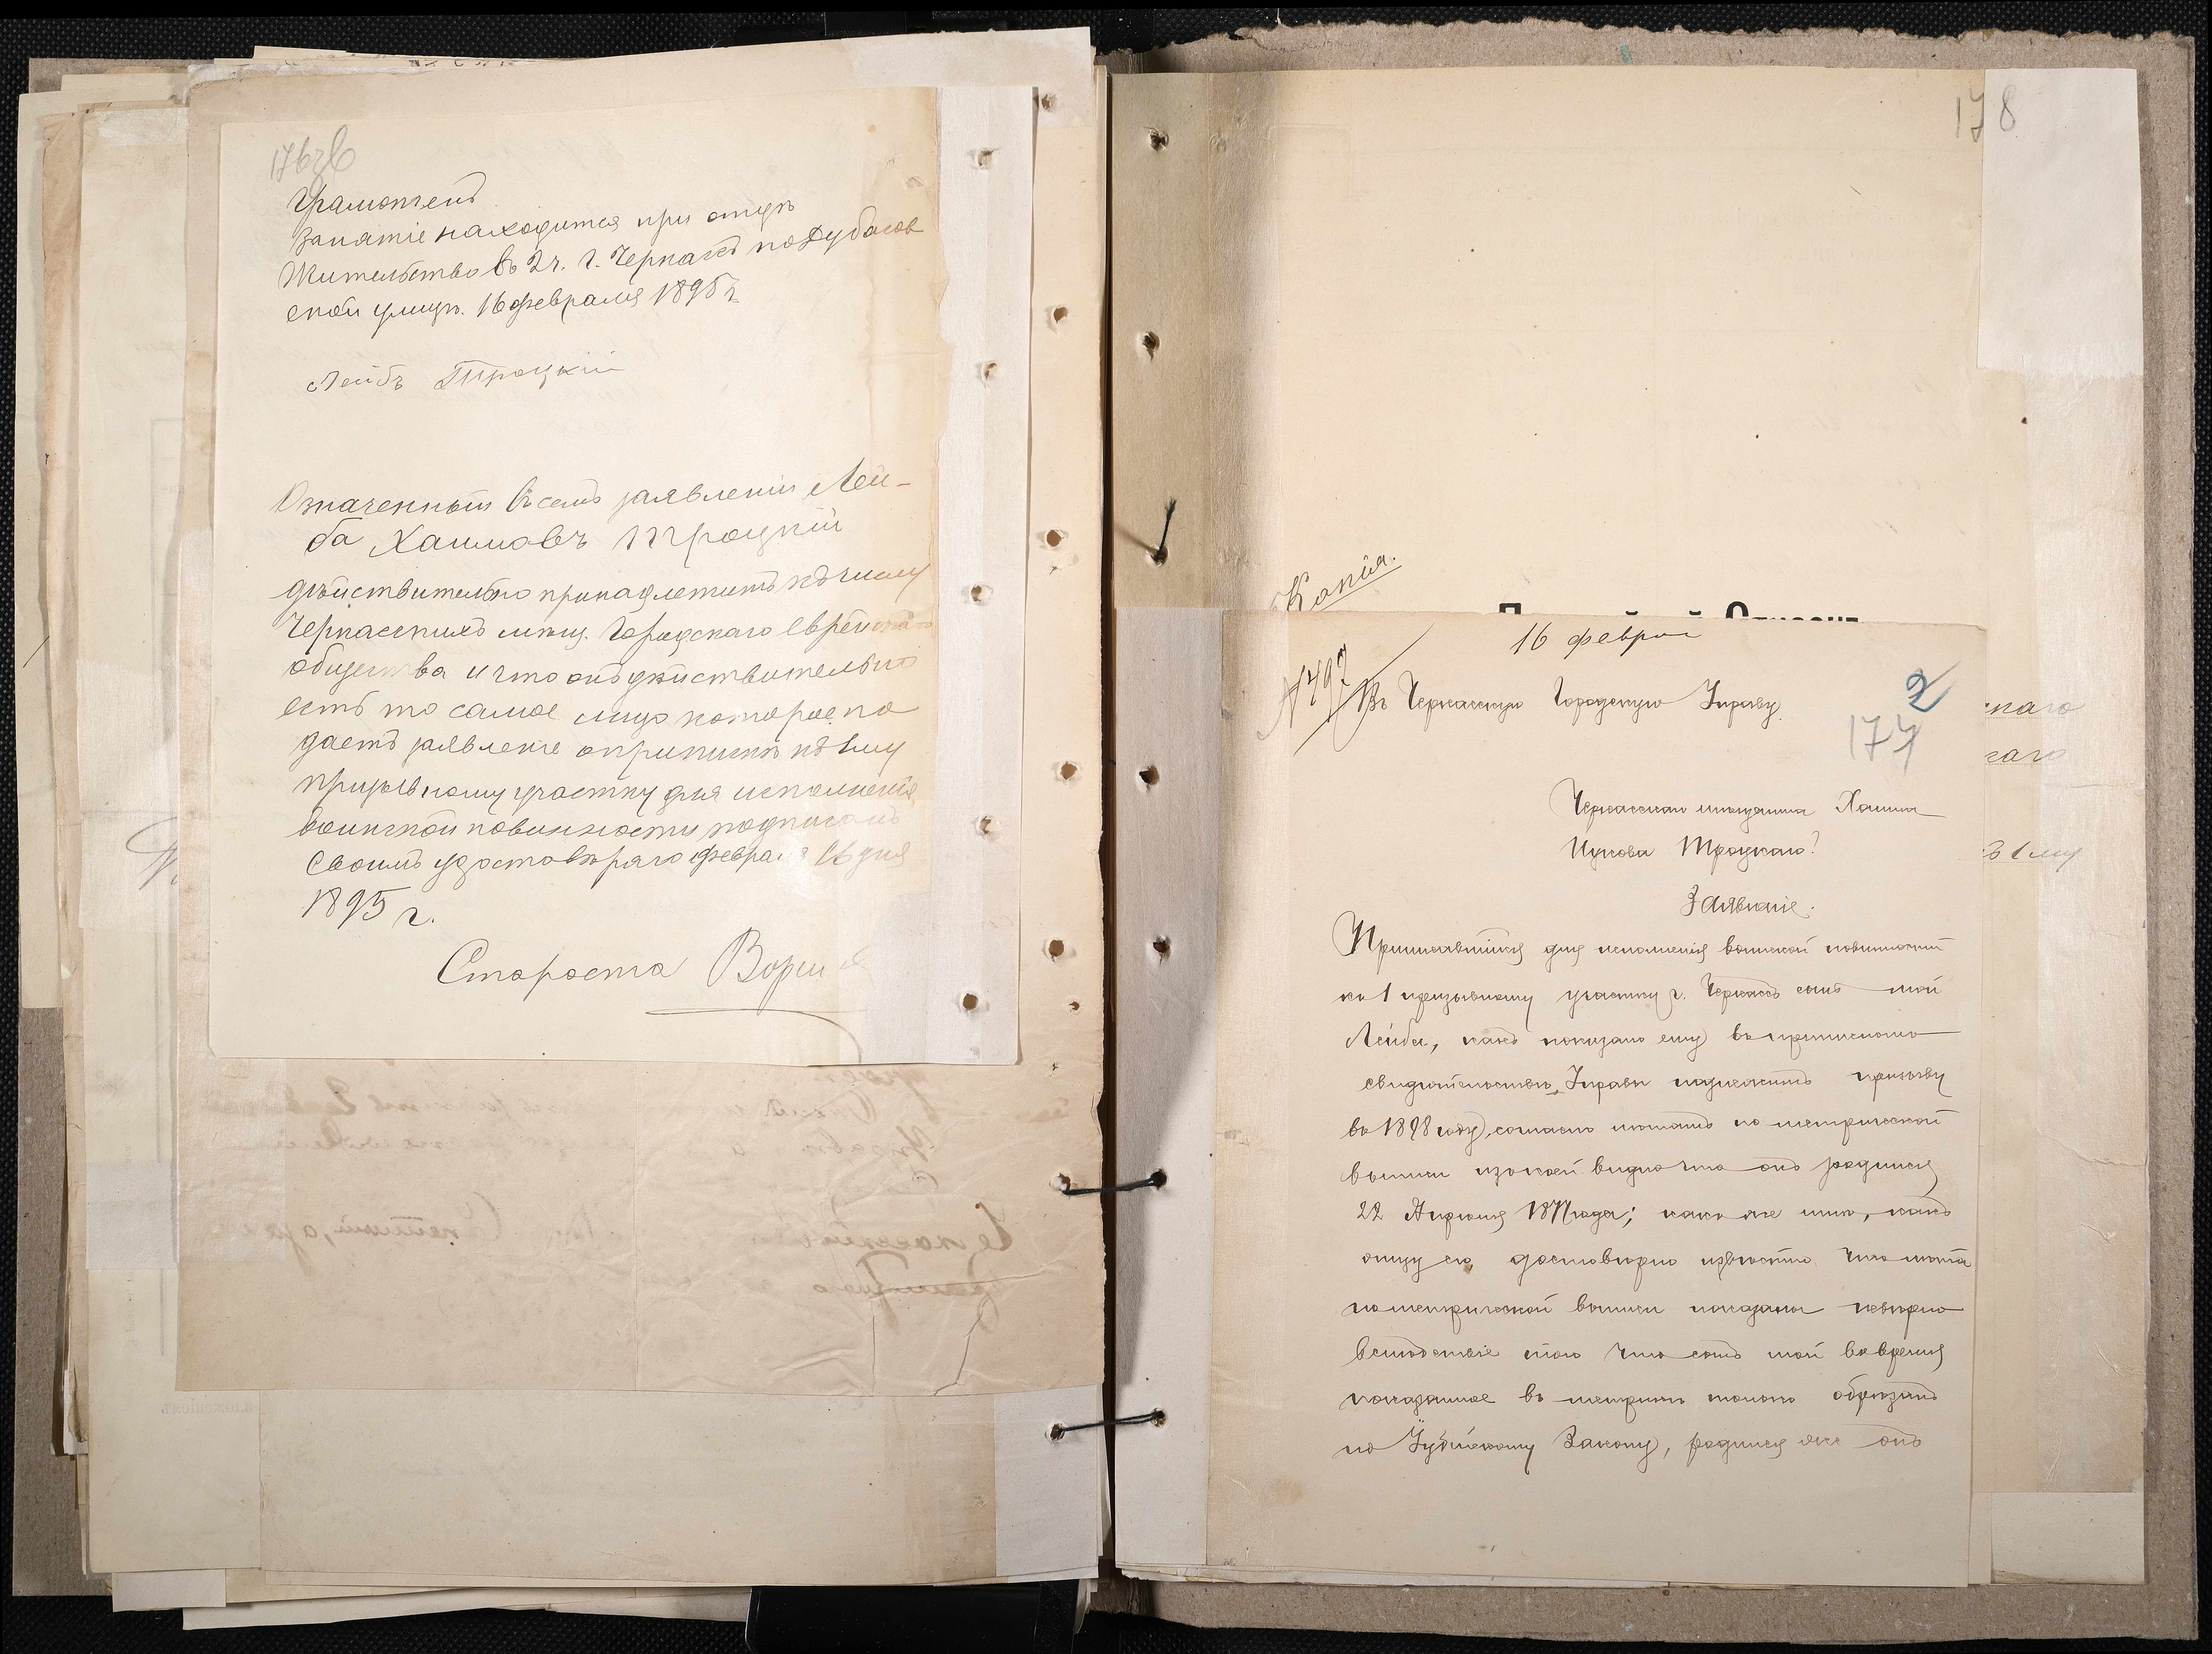 176 об
Грамотенъ
Занятіе находится при отцѣ
Жительство въ 2ч. г. Черкасъ по Дубасов
ской улицѣ. 16 февраля 1895 г.
Лейбъ Троцкій
Означенный въ семъ заявленіи Лей-
ба Хаимовъ Троцкій
дѣйствительно принадлежитъ къ числу
Черкасскихъ мѣщ. Городскаго Еврейскаго
общества и что онъ дѣйствительно
есть то самое лицо которое по
даетъ заявленіе о припискѣ къ 1му
призывному участку для исполненія
воинской повинности подписомъ
своимъ удостовѣряю февраля 16 дня
1895 г.
Староста
178
Копія.
16 феврал
№497
Въ Черкасскую Городскую Управу.
2
177
Черкасскаго мѣщанина Хаима
Ицкова Троцкаго?
Заявленіе.
Приписавшійся для исполненія воинской повинности
ко 1 призывному участку г. Черкассъ сынъ мой
Лейба, какъ показано ему въ приписномъ
свидѣтельствѣ Управы подлежитъ призыву
въ 1898 году, согласно лѣтамъ по метрической
выписи изъ коей видно что онъ родился
22 Апрѣля 1877 года; какъ же мнѣ, какъ
отцу его достовѣрно извѣстно что лѣта
по метрической выписи показаны невѣрно
вслѣдствіе того что сынъ мой во время
показанное въ метрикѣ только обрѣзанъ
по Іудейскому Закону, родился же онъ
скаго
каго
къ 1 му